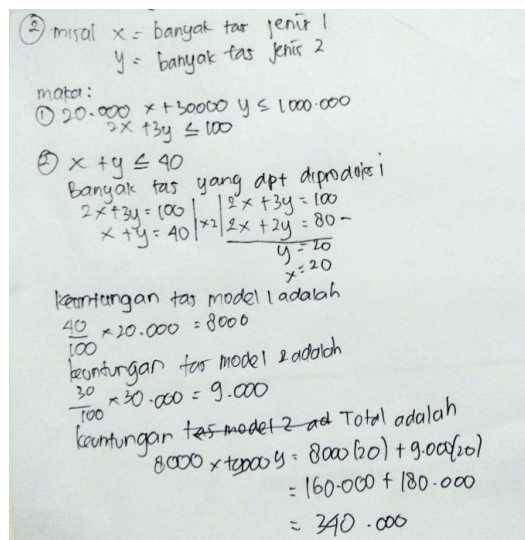 ② misal x = banyak tas jenis 1
y = banyak tas jenis 2
maka:
① 20.000 x + 30000 y ≤ 1000.000
2x + 3y ≤ 100
② x + y ≤ 40
Banyak tas yang dpt diproduksi
2x + 3y = 100 | | 2x + 3y = 100
x + y = 40 | x2 | 2x + 2y = 80 -
y = 20
x = 20
keuntungan tas model 1 adalah
40/100 x 20.000 = 8000
keuntungan tas model 2 adalah
30/100 x 30.000 = 9.000
keuntungan tas model 2 ad Total adalah
8000 x + 9000 y = 8000 (20) + 9.000 (20)
= 160.000 + 180.000
= 340.000